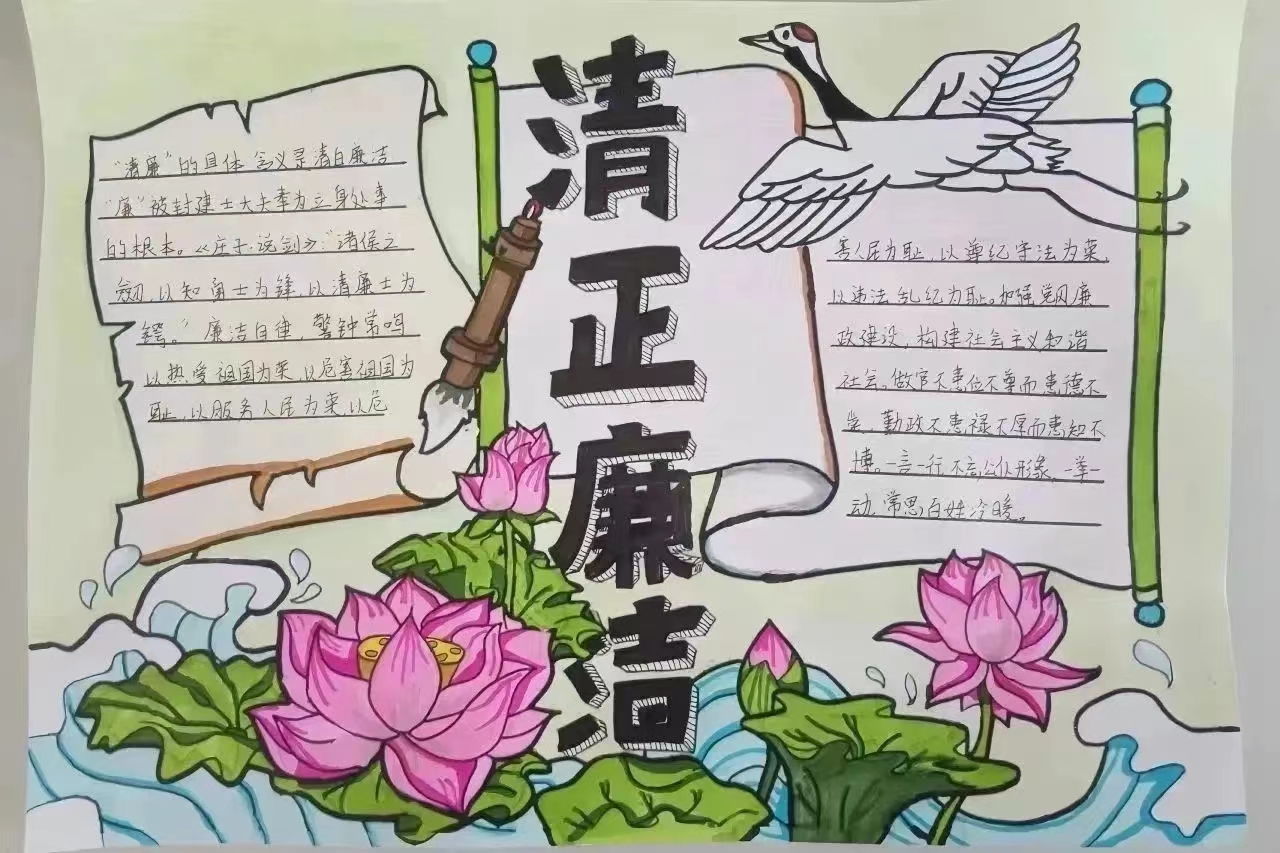 清正廉洁
"清廉"的具体含义是清白廉洁
"廉"被封建士大夫奉为立身处事
的根本。《庄子·说剑》:"诸侯之
剑,以知勇士为锋,以清廉士为
锷。"廉洁自律,警钟常鸣
以热爱祖国为荣,以危害祖国为
耻,以服务人民为荣,以危
害人民为耻,以遵纪守法为荣,
以违法乱纪为耻。加强党风廉
政建设,构建社会主义和谐
社会,做官不患位不尊而患德不
崇,勤政不患禄不厚而患知不
博。一言一行不忘公仆形象,一举一
动,常思百姓冷暖。